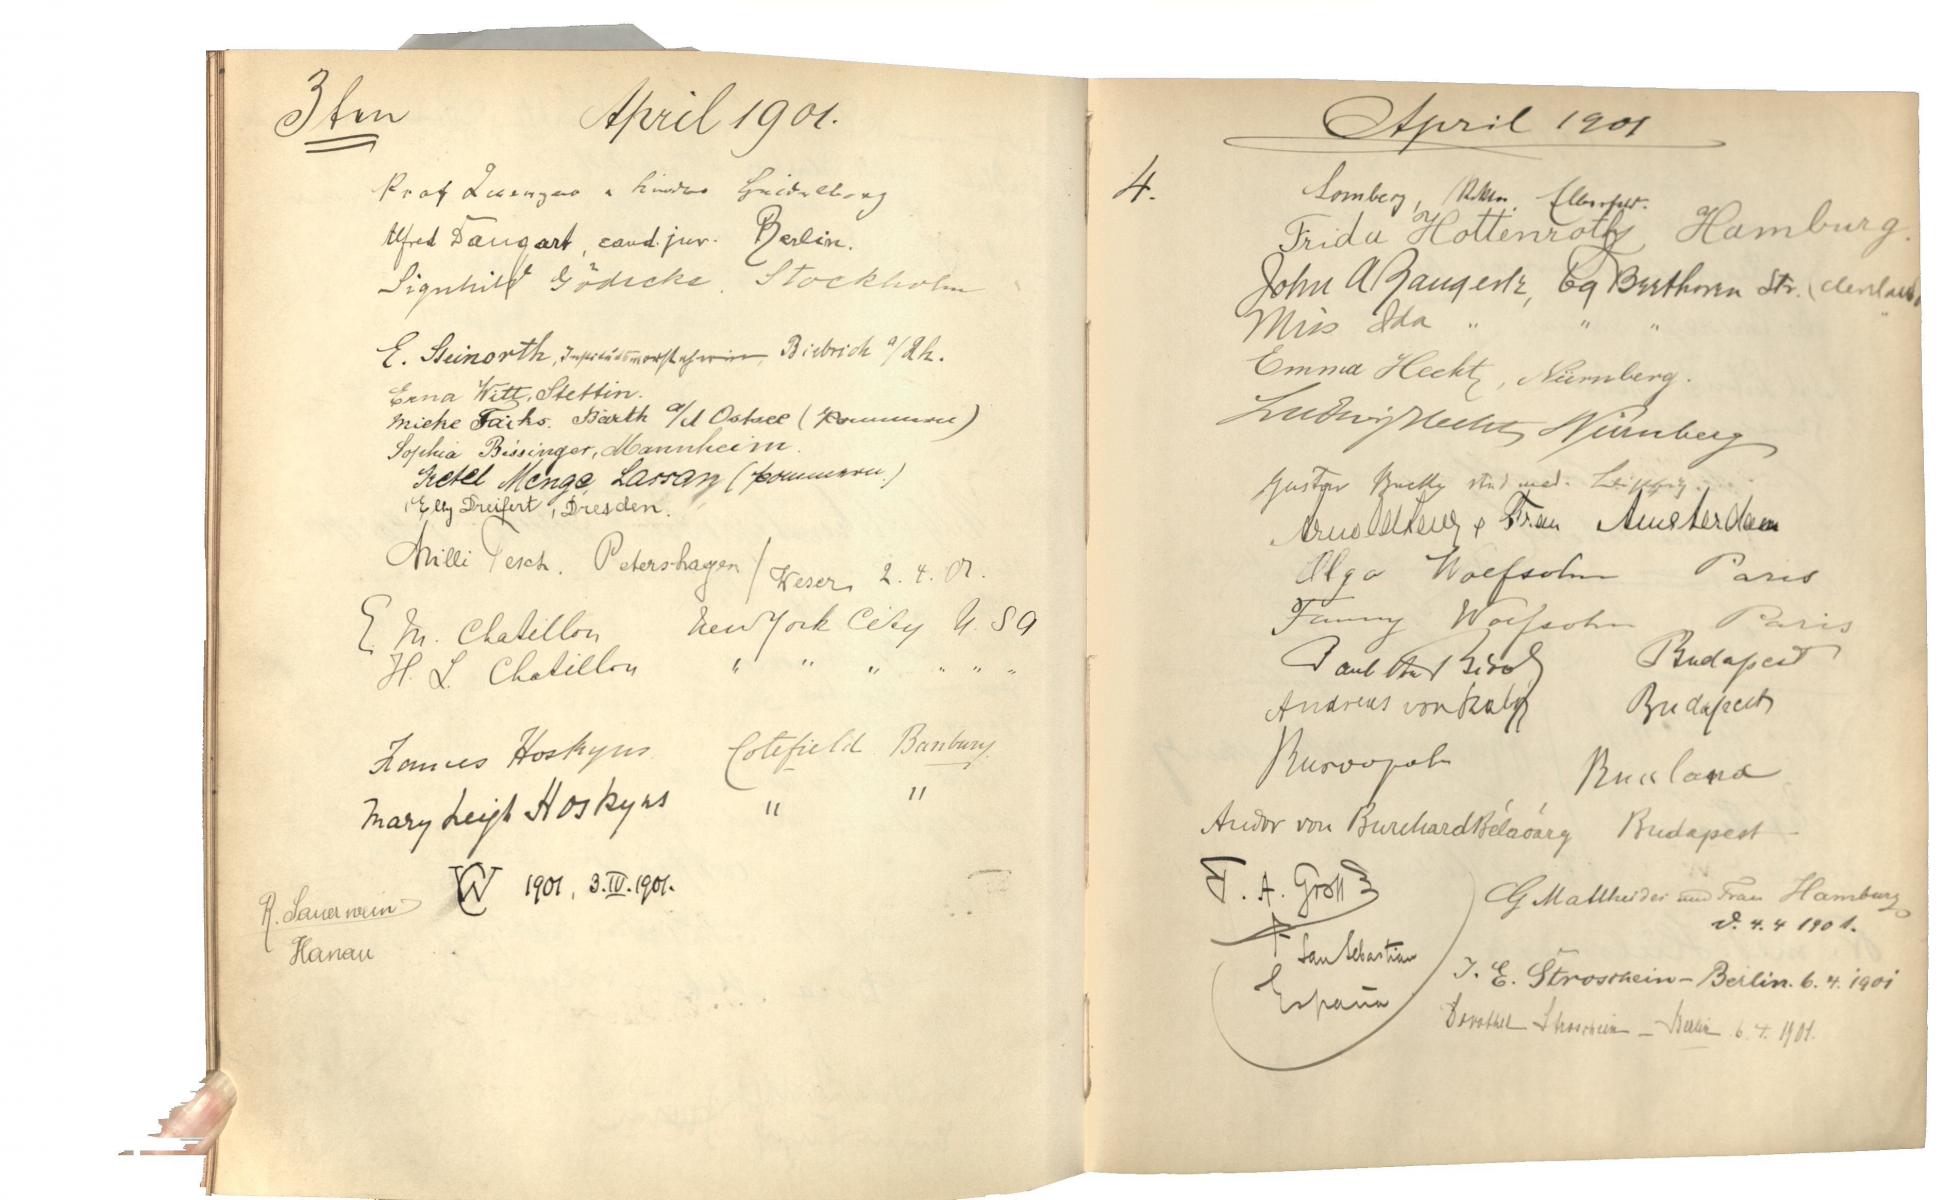 3ten April 1901.
Prof
Alfred Dangart, cand. jur. Berlin.
Signhild Gödecke, Stockholm
E. Steinorth, Biebrich a/Rh.
Erna Witt, Stettin.
Mieke Barth a/d Ostsee (Pommern)
Sophia Bissinger, Mannheim.
Menge Lassan (Pommern.)
Elly Dreifert, Dresden.
Milli Tesch. Petershagen / Weser, 2. 4. 01.
E. M. Chatillon New York City U. S A
H. L. Chatillon " " " " " "
Frances Hoskyns Cotefield Banbury.
Mary Leigh Hoskyns " "
1901, 3.IV.1901.
R. Sauerwein
Hanau
April 1901
4.
Lomberg,
Frida Hottenroth, Hamburg.
John A Zaugerle, 69 Beethoven Str. Cleveland
Miss Ida " " " "
Emma Hecht, Nürnberg.
Ludwig Hecht, Nürnberg
Gustav Bucky stud med. Leipzig.
& Frau Amsterdam
Olga Wolfsohn Paris
Fanny Wolfsohn Paris
Budapest
Andreas von Budapest
Russland
Andor von Burchard Bélaváry Budapest –
F. A. Groß
San Sebastian
España
CG Mattheides und Frau Hamburg
d. 4. 4 1901.
J. E. Stroschein – Berlin. 6. 4. 1901
Dorothee Stroschein – Berlin 6. 4. 1901.